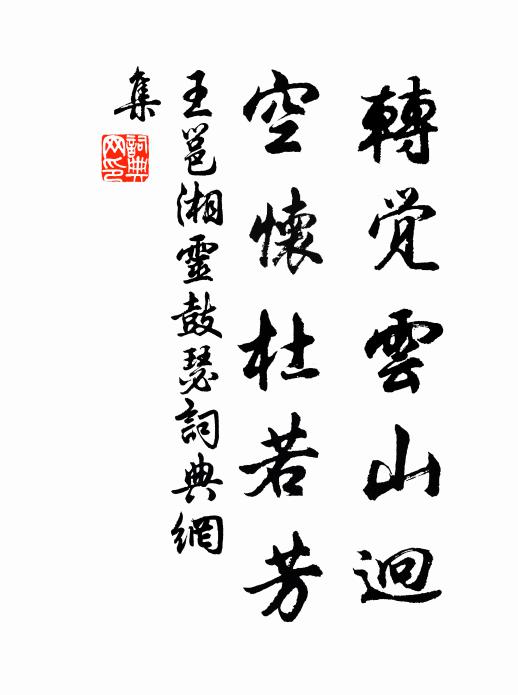 轉覺雲山迥
空懷杜若芳
王邕湘靈鼓瑟詞典網
集
詞典
网印